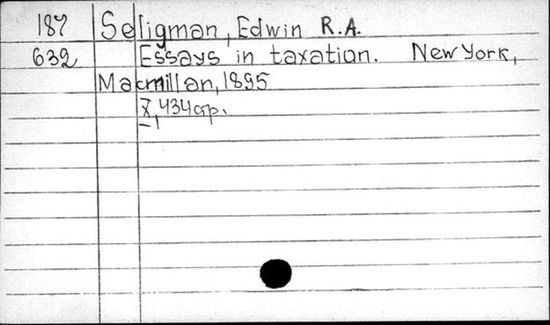 187 Seligman, Edwin R.A.
632 Essays in taxation. New York,
Macmillan, 1895
434 p.